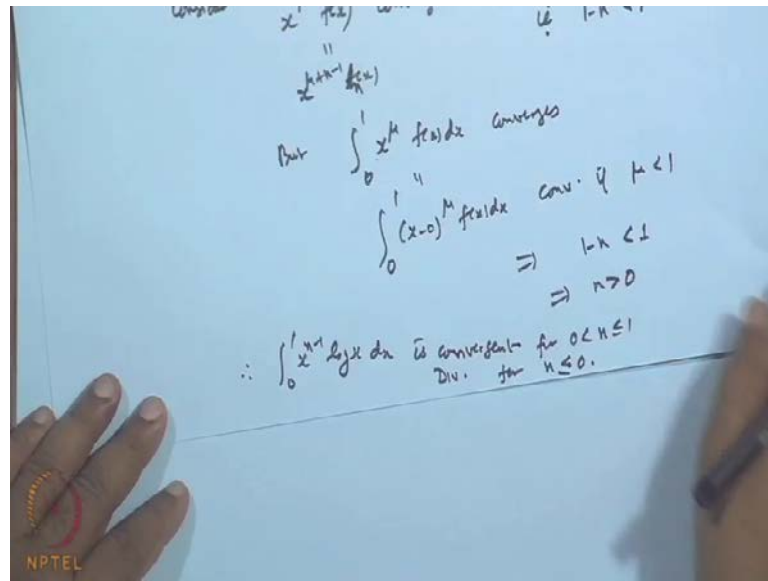 x^μ f(x) is 1-n < 1
"
x^{μ+n-1} f(x)
But ∫_0^1 x^μ f(x) dx converges
"
∫_0^1 (x-0)^μ f(x) dx conv. if μ < 1
⇒ 1-n < 1
⇒ n > 0
∴ ∫_0^1 x^{n-1} log x dx is convergent for 0 < n ≤ 1
Div. for n ≤ 0.
NPTEL